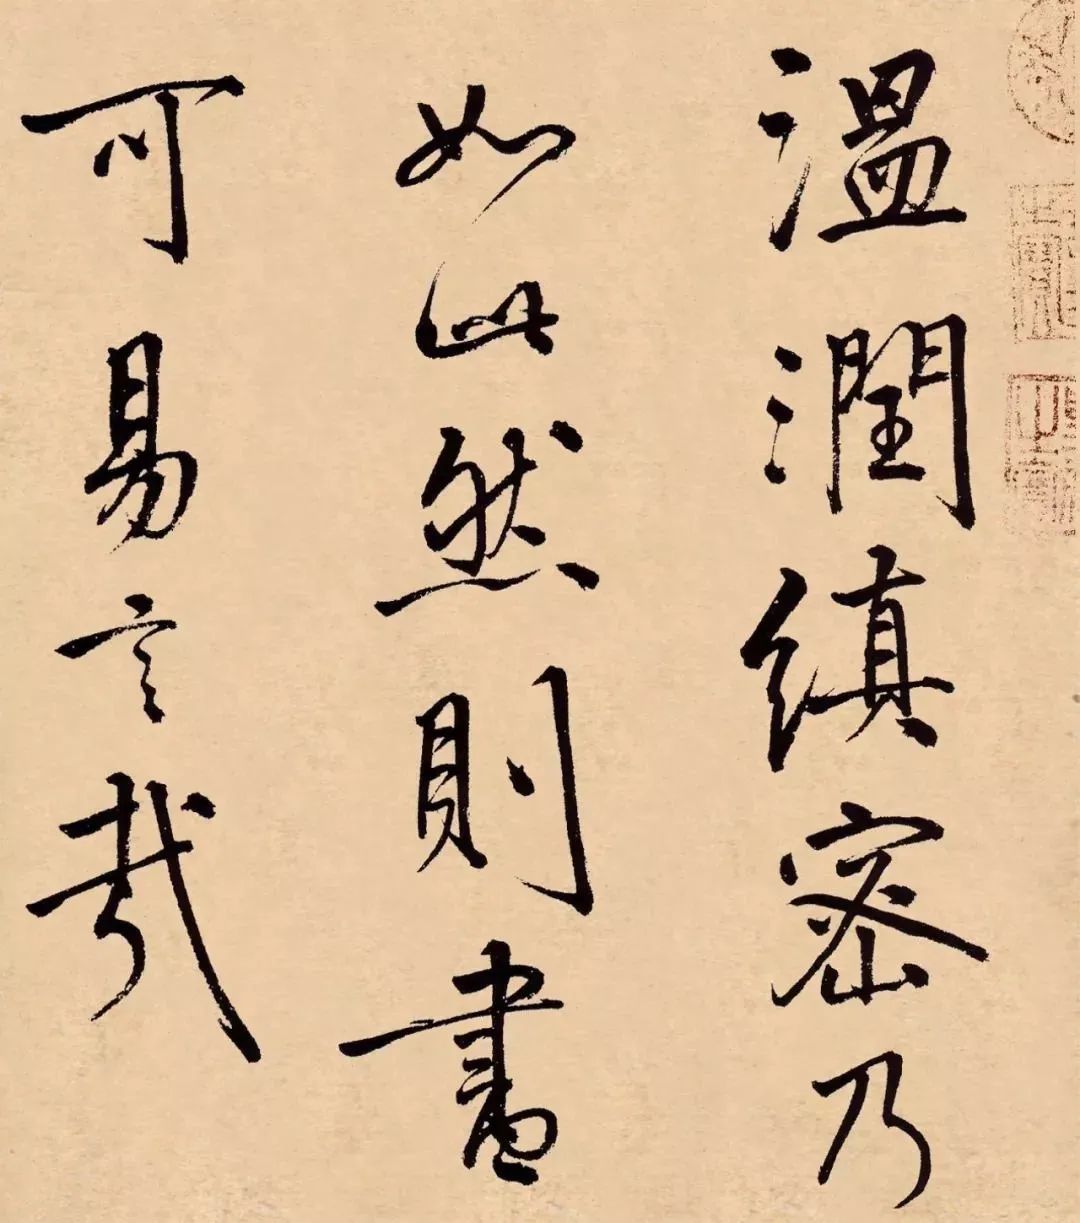 溫潤縝密乃
如此然則畫
可易言哉